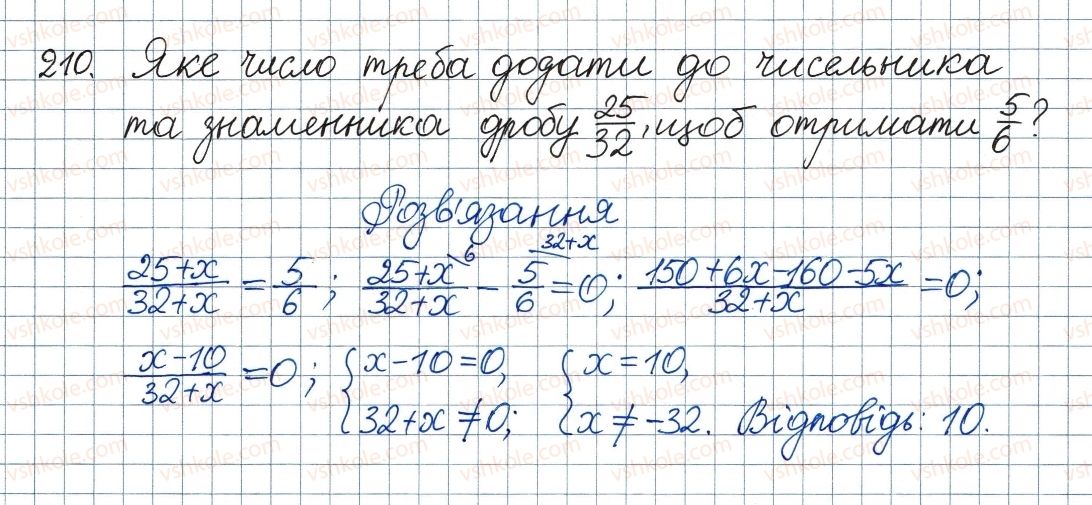 210. Яке число треба додати до чисельника
та знаменника дробу 25/32, щоб отримати 5/6?
Розв'язання
(25+x)/(32+x) = 5/6; (25+x)/(32+x) \6 - 5/6 \32+x = 0; (150+6x-160-5x)/(32+x) = 0;
(x-10)/(32+x) = 0; { x-10=0, 32+x≠0; { x=10, x≠-32. Відповідь: 10.